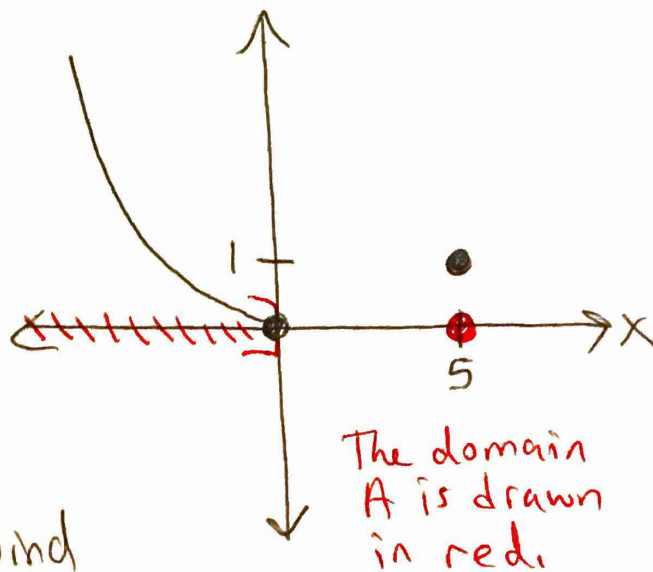 1
X
5
The domain
A is drawn
in red.